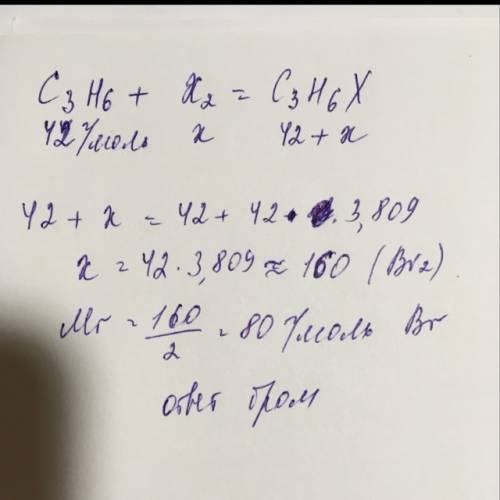 C₃H₆ + X₂ = C₃H₆X
42 г/моль x 42 + x
42 + x = 42 + 42 · 3,809
x = 42 · 3,809 ≈ 160 (Br₂)
Mr = 160/2 = 80 г/моль Br
ответ бром